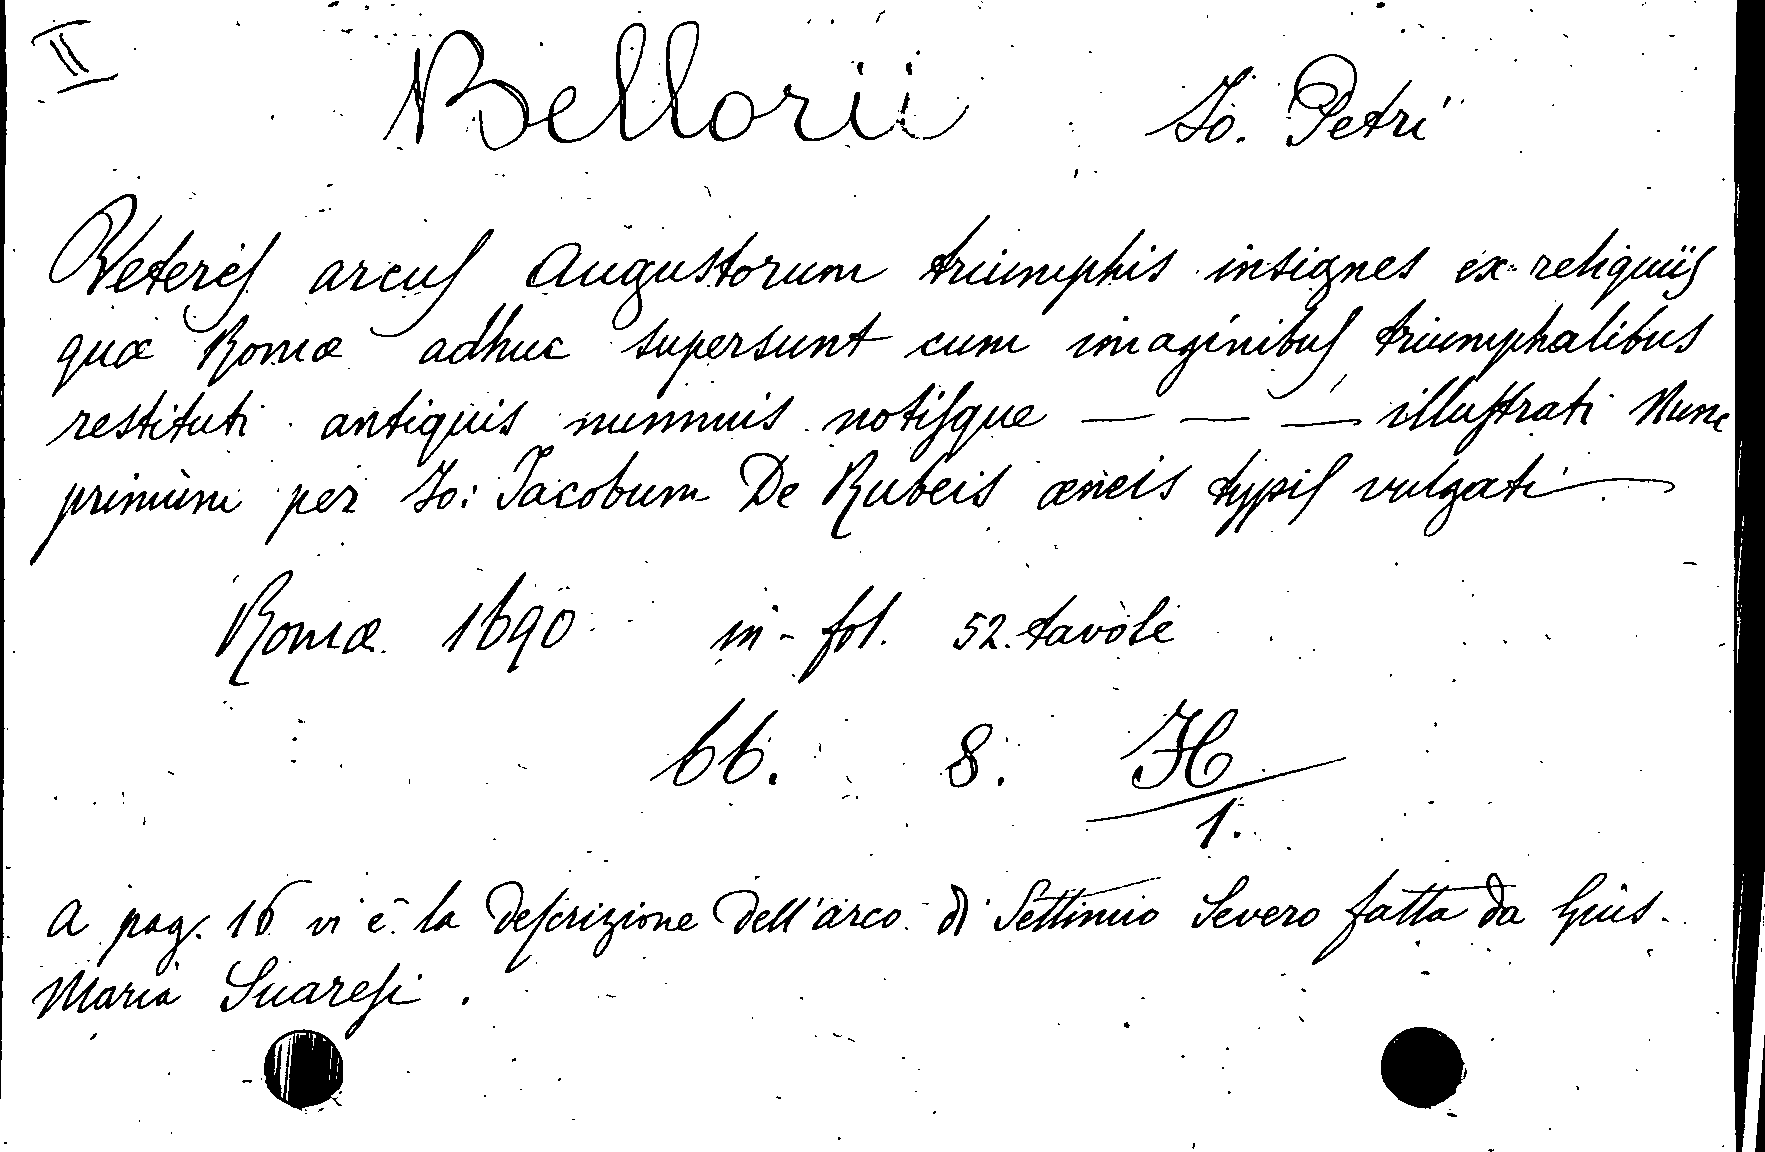 II
Bellorii Io. Petri
Veteres arcus Augustorum triumphis insignes ex reliquiis
quæ Romæ adhuc supersunt cum imaginibus triumphalibus
restituti antiquis nummis notisque — — — illustrati Nunc
primùm per Io: Jacobum De Rubeis æneis typis vulgati —
Romæ 1690 in-fol. 52. tavole
66. 8. H
1.
A pag. 16 vi è la descrizione dell'arco di Settimio Severo fatta da Gius.
Maria Suaresi.